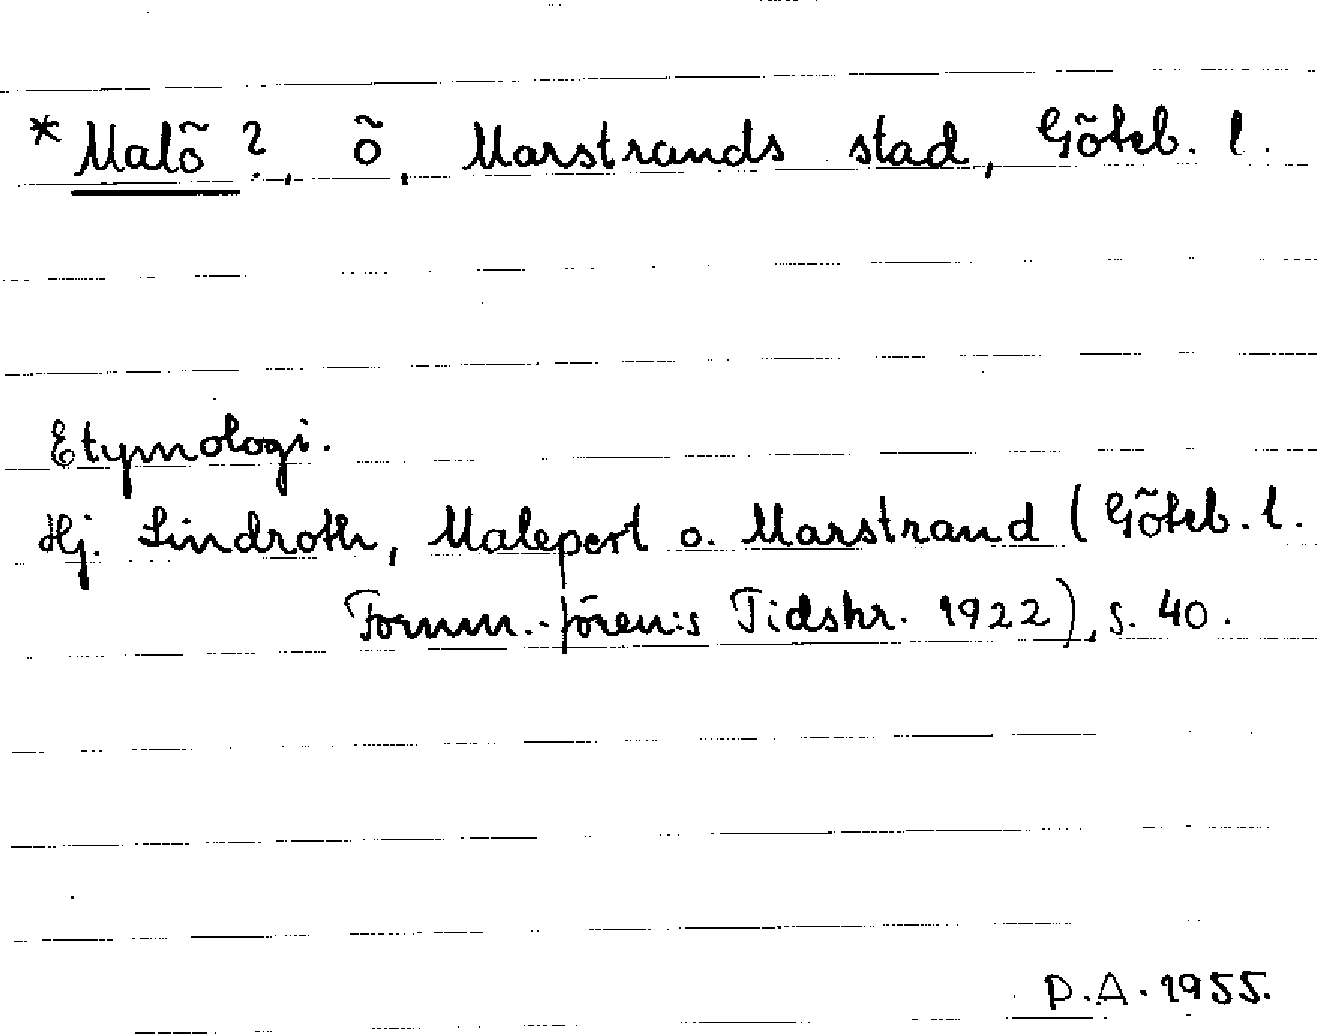 *Malõ?, õ, Marstrands stad, Gõteb. l.
Etymologi.
Hj. Lindroth, Malepert o. Marstrand (Gõteb. l.
Fornm.-fören:s Tidskr. 1922), s. 40.
P.A. 1955.